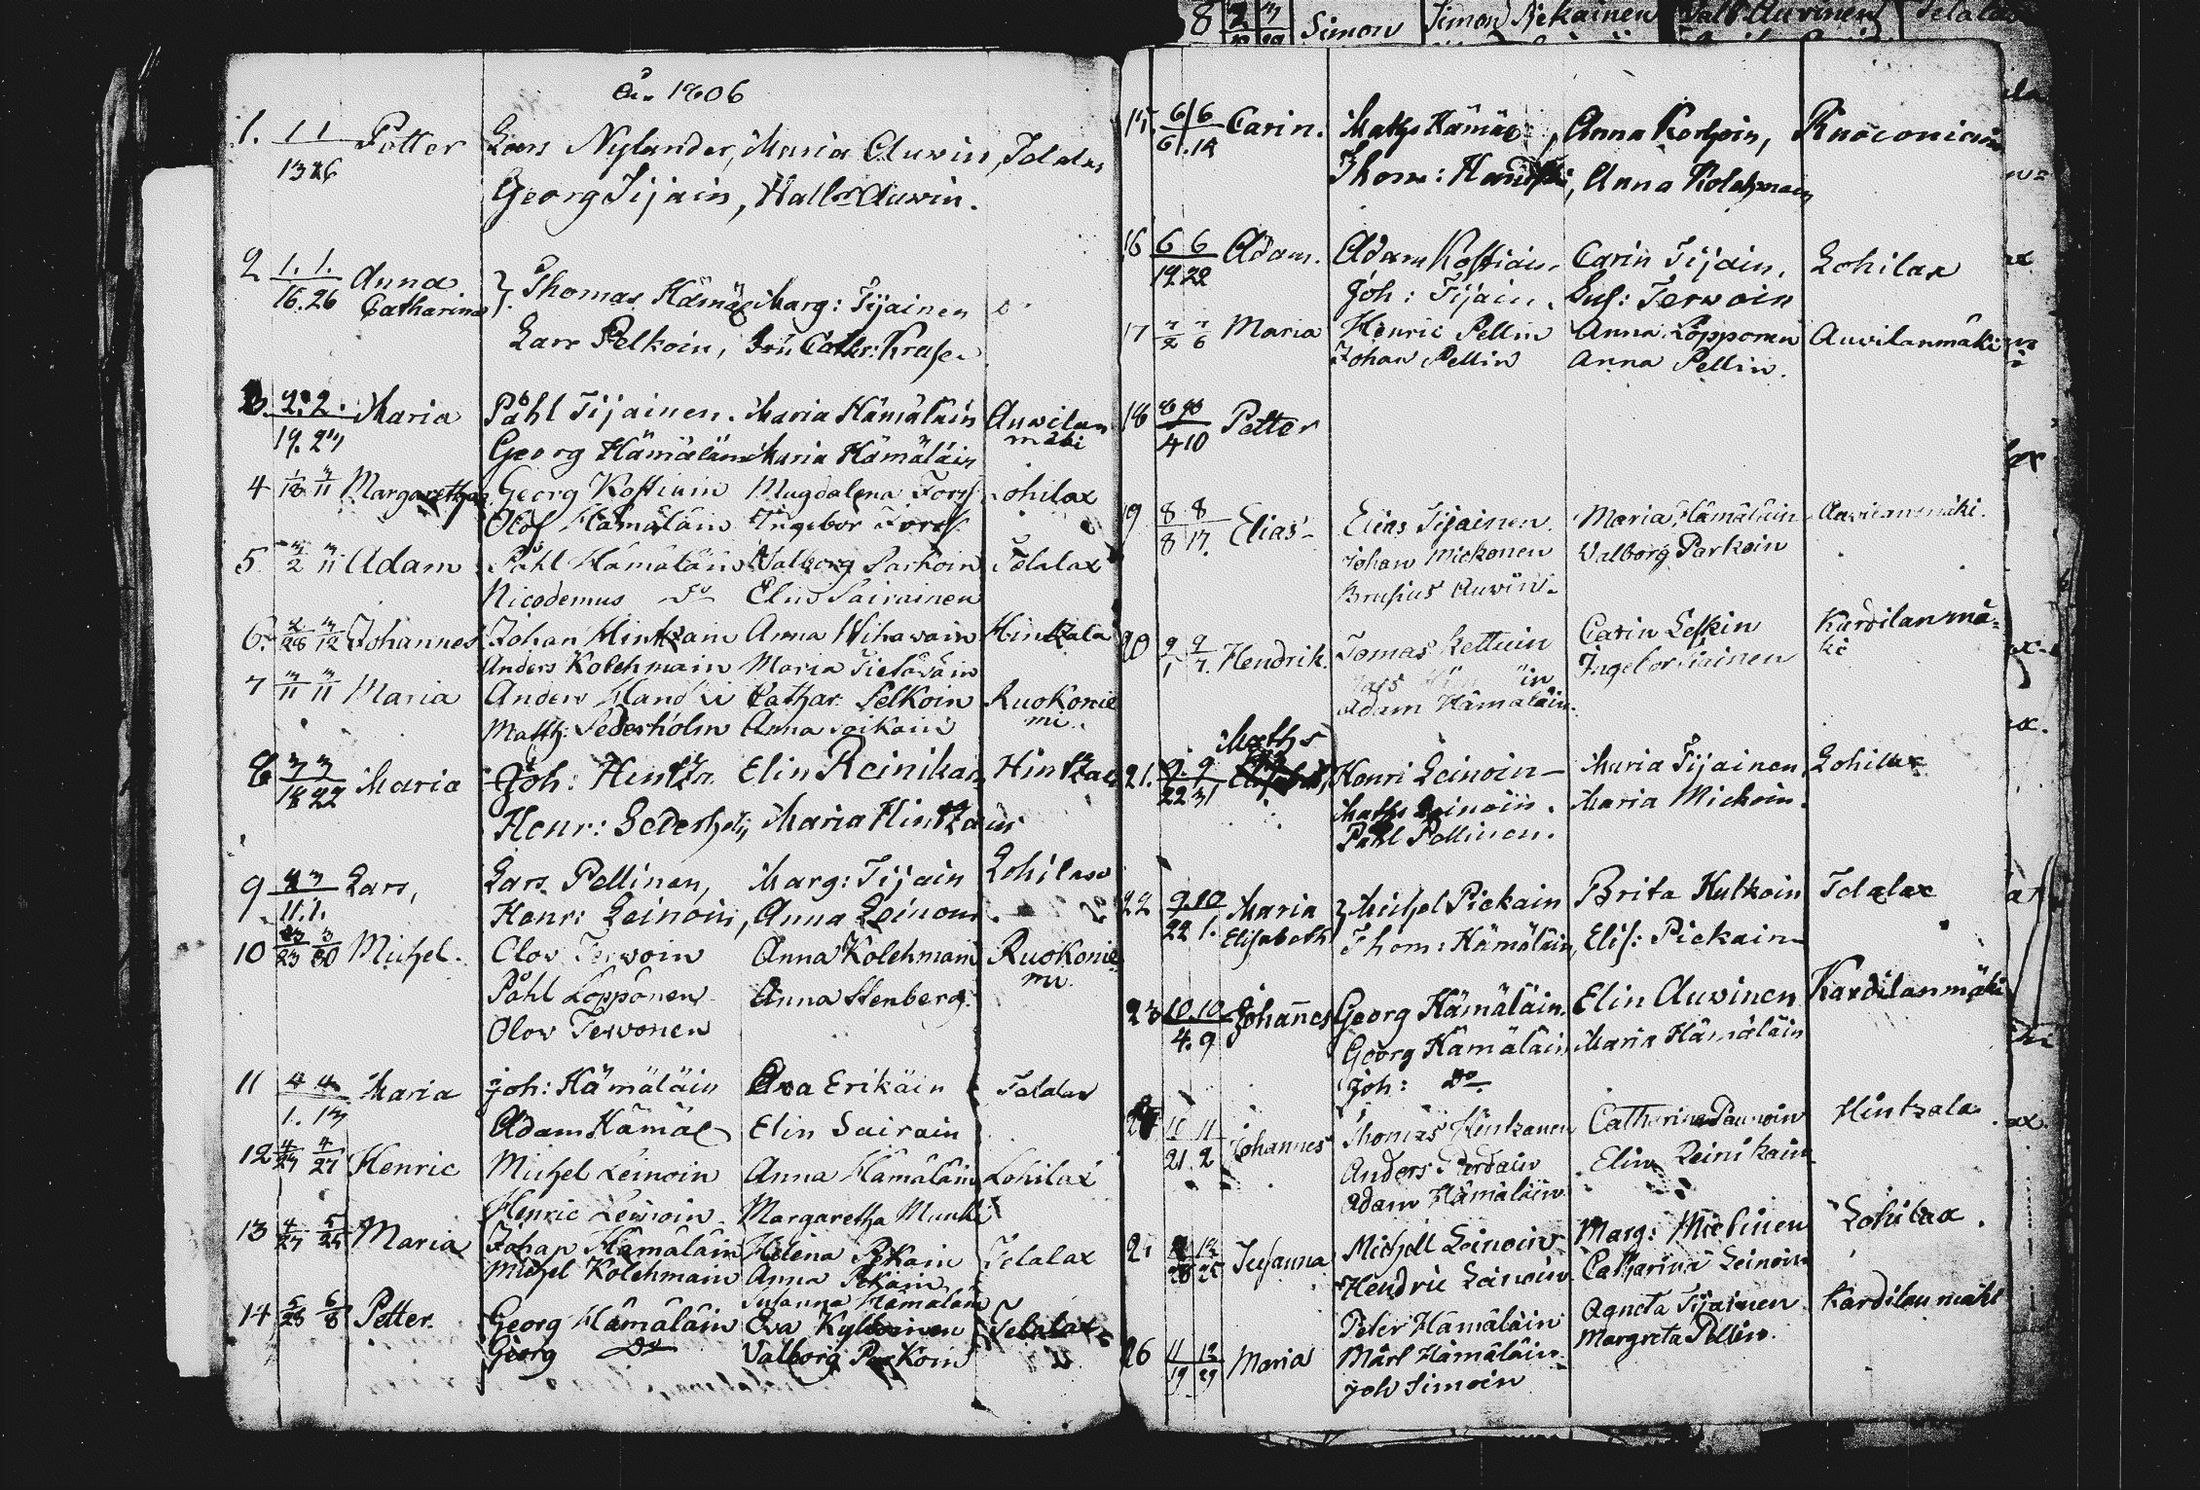 8 Simon Simon Pekainen Valb Auvinen
år 1806
1. 1 1 Petter Lars Nylander, Maria Auwin, Telalax
13 26 Georg Tijain, Hall Auwin.
2 1. 1. Anna } Thomas Hämäl Marg: Tijainen
16. 26 Catharina
Lars Pelkoin, Cathr:
3. 2. 2. Maria Påhl Tijainen. Maria Hämäläin Auwilan
19. 23 Georg Hämäläin Maria Hämäläin mäki
4 Margaretha Georg Kostiain Magdalena Forss Lohilax
Olof Hämäläin Ingebor Forss
5 3/2 3/11 Adam Påhl Hämäläin Valborg Parkoin Telalax
Nicodemus Do Elin Sairainen
6. 2/28 3/12 Johannes Johan Hintzain Anna Wihawain Hintzala
Anders Kolehmain Maria Tietäväin
7 3/11 3/11 Maria Anders Cathar. Pelkoin Ruokonie
Matth: Sederholm Anna mi.
8 3 3 Maria Joh: Hintza Elin Reinikai Hintzal
18 22 Henr: Maria Hintza
9 Lars, Lars Pellinen, Marg: Tijain Lohilax
11. 1. Henr: Leinoin, Anna Leinon
10 Michel. Olov Terwoin Anna Kolehmain Ruokonie
23 30 Påhl Loppönen Anna Stenberg. mi.
Olov Terwonen
11 4 4 Maria Joh: Hämäläin Eva Erikäin Telalax
1. 13 Adam Hämäl Elin Sairain
12 4/27 4/27 Henric Michel Leinoin Anna Hämäläin Lohilax
Henric Leinoin Margaretha
13 4/27 5/25 Maria Johan Hämäläin Helena Telalax
Michel Kolehmain Anna
Susanna Hämäläin
14 5/28 6/8 Petter. Georg Hämäläin Eva Telalax
Georg Do Valborg Parkoin
15. 6 6 Carin. Maths Hämäl, Anna Korhoin, Ruoconiemi
6. 14 Thom:, Anna Kolehmain
16 6 6 Adam. Adam Kostiain Carin Tijain. Lohilax
19 22 Joh: Tijain. Sus: Terwoin
17 7/2 7/6 Maria Henric Pellin Anna Löpponen Auvilanmäki
Johan Pellin Anna Pellin.
18 8 8 Petter
4 10
19 8 8 Elias Elias Tijainen Maria Hämäläin Auvilanmäki.
8 17. Johan Mickonen Valborg Parkoin
Brusius Auvin.
20 9/1 9/7. Hendrik. Tomas Kettuin Carin Leskin Kardilanmä=
Ingebor ki
Adam Hämäläin.
Maths
21. 9. 9 Henri Leinoin Maria Tijainen Lohilax
22 31 Maths Leinoin. Maria Mickoin.
Påhl Pellinen.
22 9 10 Maria } Michel Pickain Brita Hulkoin Telalax
22 1. Elisabeth Thom: Hämäläin Elis: Pickain
23 10. 10 Johannes Georg Hämäläin. Elin Auvinen Kardilanmäki
4. 9 Georg Hämäläin Maria Hämäläin
Joh: Do
11 11 Johannes Thomas Hintzanen Catharina Paunoin Hintzala
21. 2 Anders Elin Reinikain
Adam Hämäläin
12 Susanna Michell Leinoin Marg: Mielinen Lohilax.
28 25 Hendric Leinoin Catharina Leinoin
Peter Hämäläin Agneta Tijainen Kardilanmäki
26 11 12 Maria Mårt Hämäläin. Margreta Pellin.
19 29 Joh Simoin